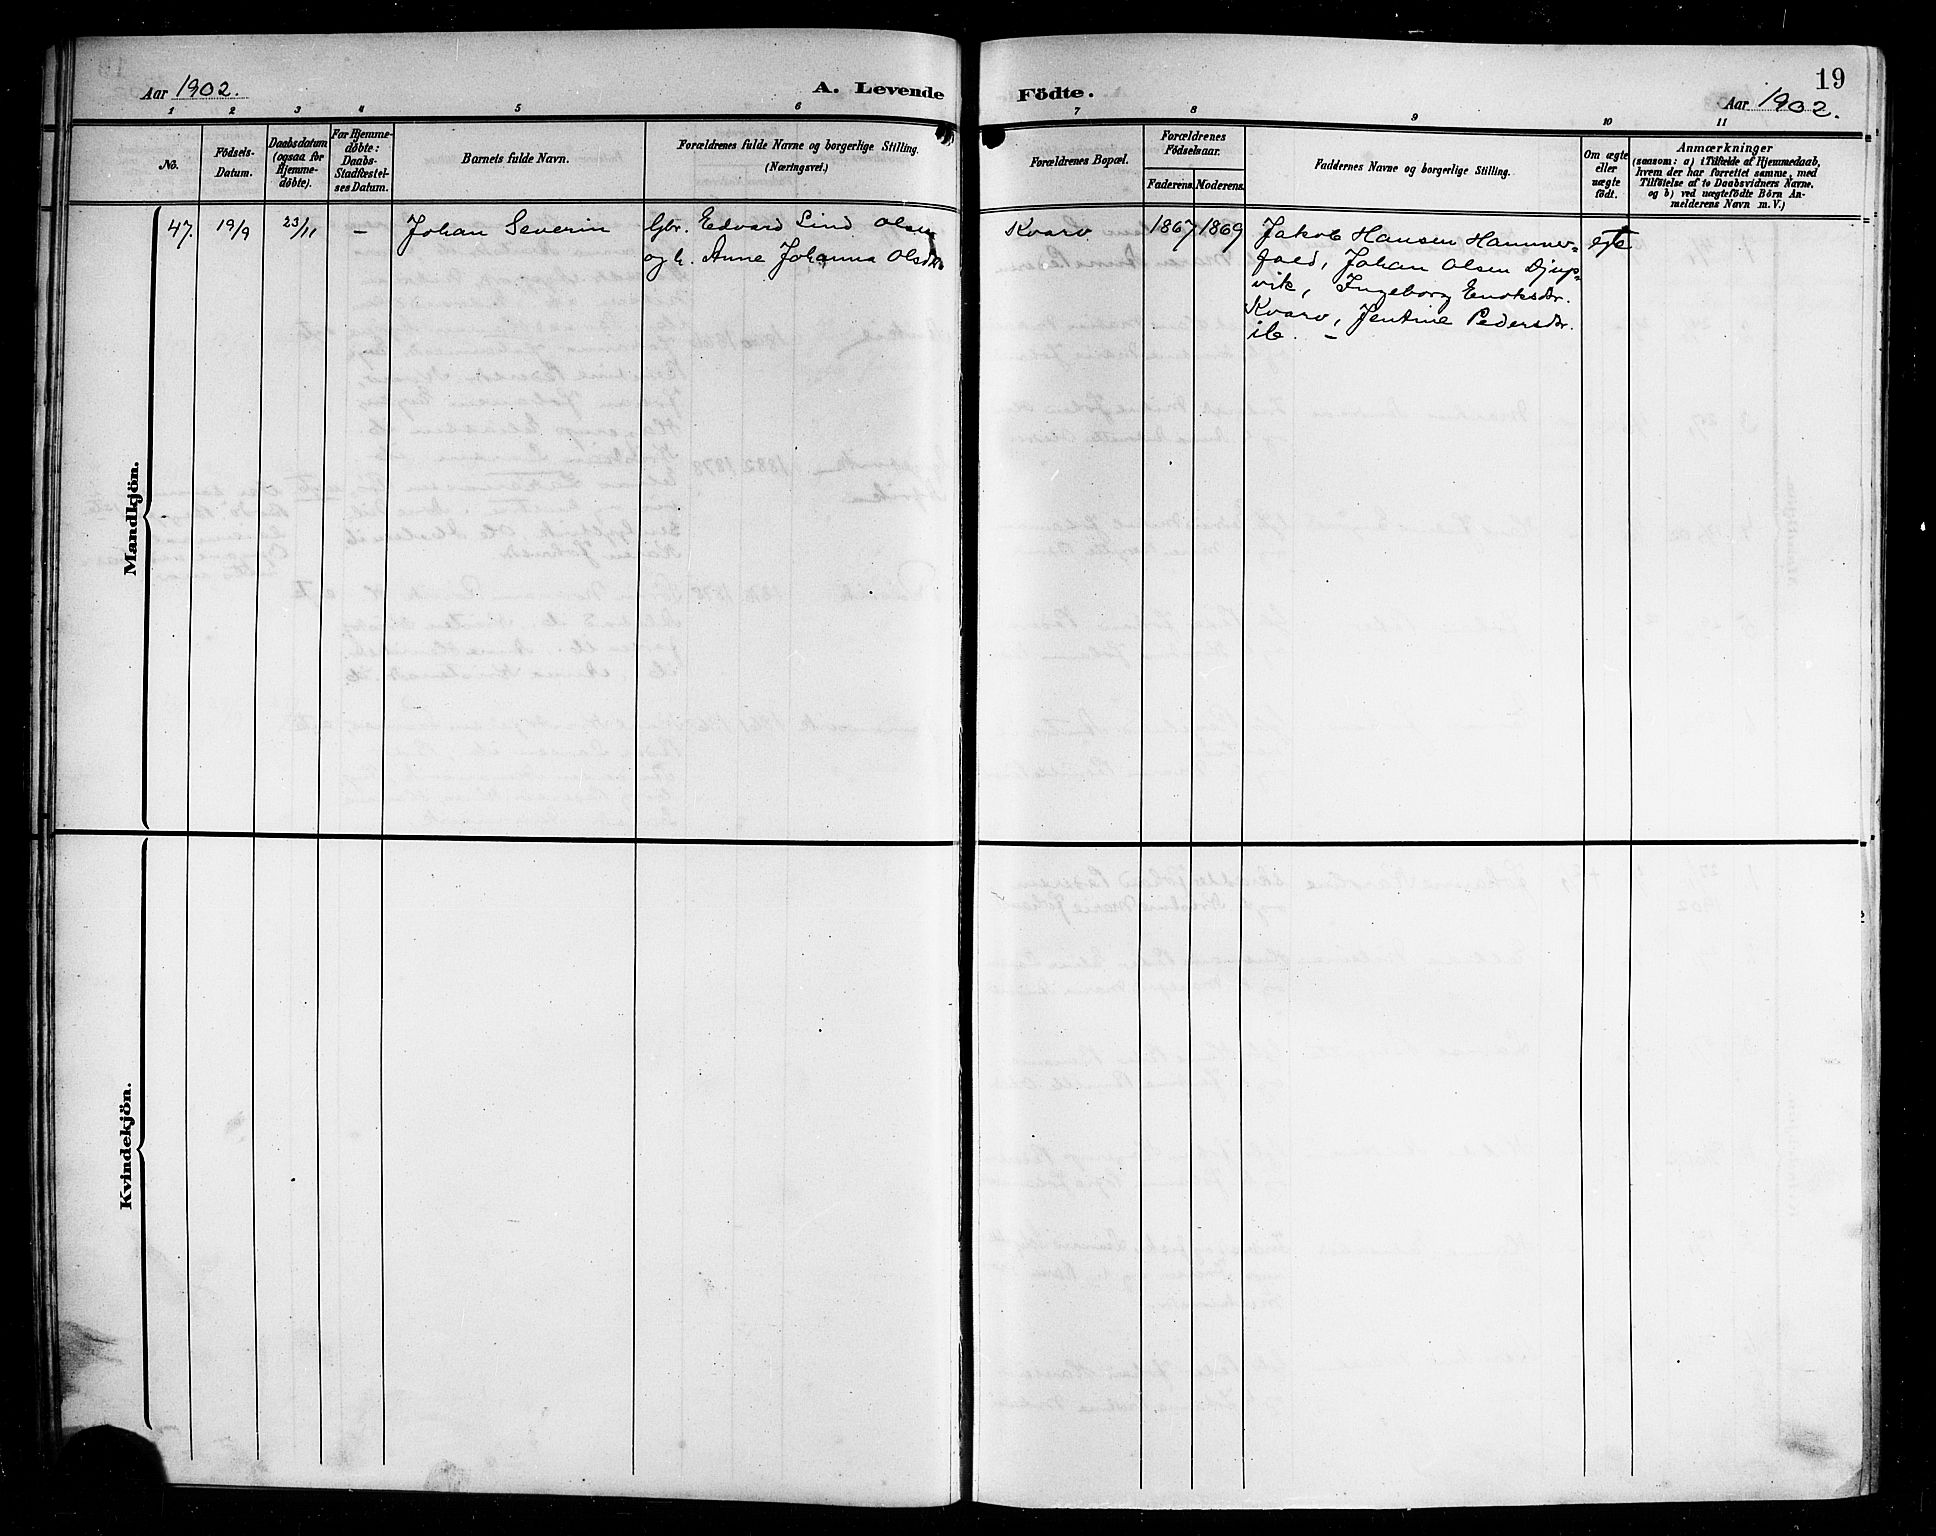 Aar 1902.
A. Levende
1 2 3 4 5 6
No.
Födsels-
Datum.
Daabsdatum
(ogsaa for
Hjemme-
döbte).
For Hjemme-
döbte:
Daabs-
Stadfæstel-
ses Datum.
Barnets fulde Navn.
Forældrenes fulde Navne og borgerlige Stilling.
(Næringsvei.)
Mandkjön.
47. 19/9 23/11 – Johan Severin Gbr. Edvard Lind Olsen
og h. Anne Johanna Olsdtr.
Kvindekjön.
Födte.
19
Aar 1902.
7 8 9 10 11
Forældrenes Bopæl.
Forældrenes
Födselsaar.
Faderens. Moderens.
Faddernes Navne og borgerlige Stilling.
Om ægte
eller
uægte
födt.
Anmærkninger
(saasom: a) i Tilfælde af Hjemmedaab,
hvem der har forrettet samme, med
Tilföielse af to Daabsvidners Navne.
og b) ved uægtefödte Börn An-
melderens Navn m. V.)
Kvarv 1867 1869 Jakob Hansen Hammer- egte
fald, Johan Olsen Djup-
vik, Ingeborg Enoksdr.
Kvarv, Jentine Pedersdr.
ib. –